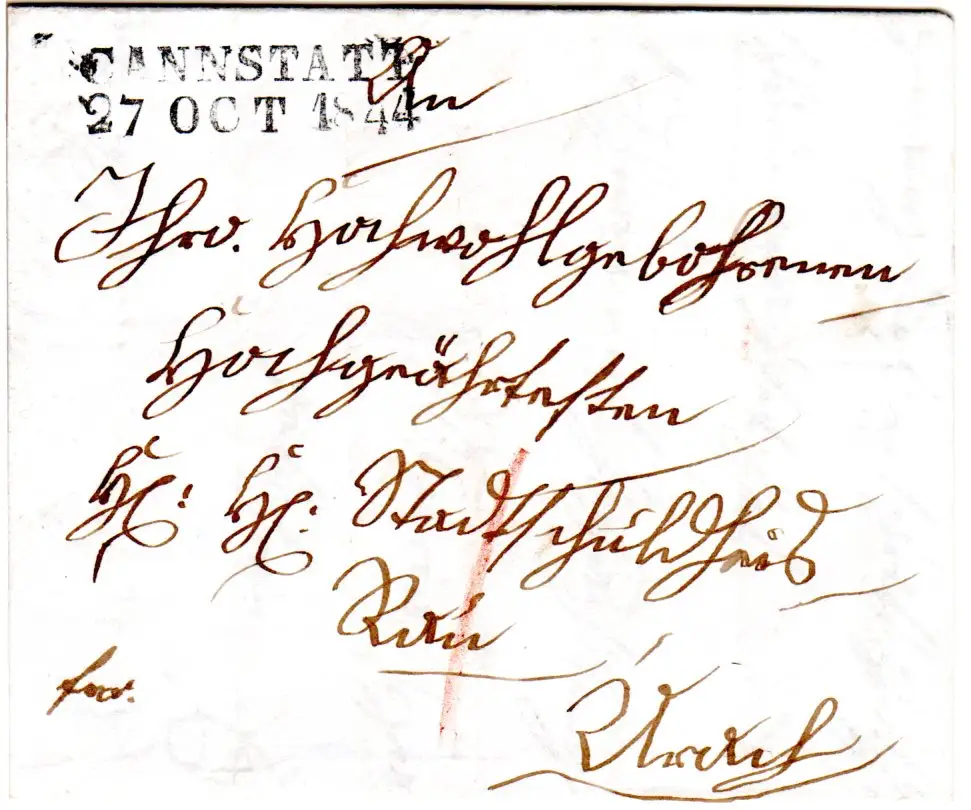 CANNSTATT
27 OCT 1844
An
Ihro. Hochwohlgebohrenen
Hochgeährtesten
Hr: Hr: Stadtschuldheis
Rau
frw.
Urach